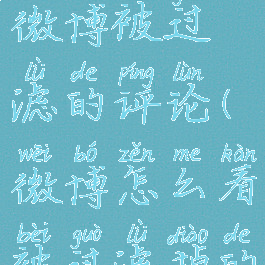 微博被过
lǜ de píng lùn
滤的评论(
wēi bó zěn me kàn
微博怎么看
bèi guò lǜ diào de
被过滤掉的